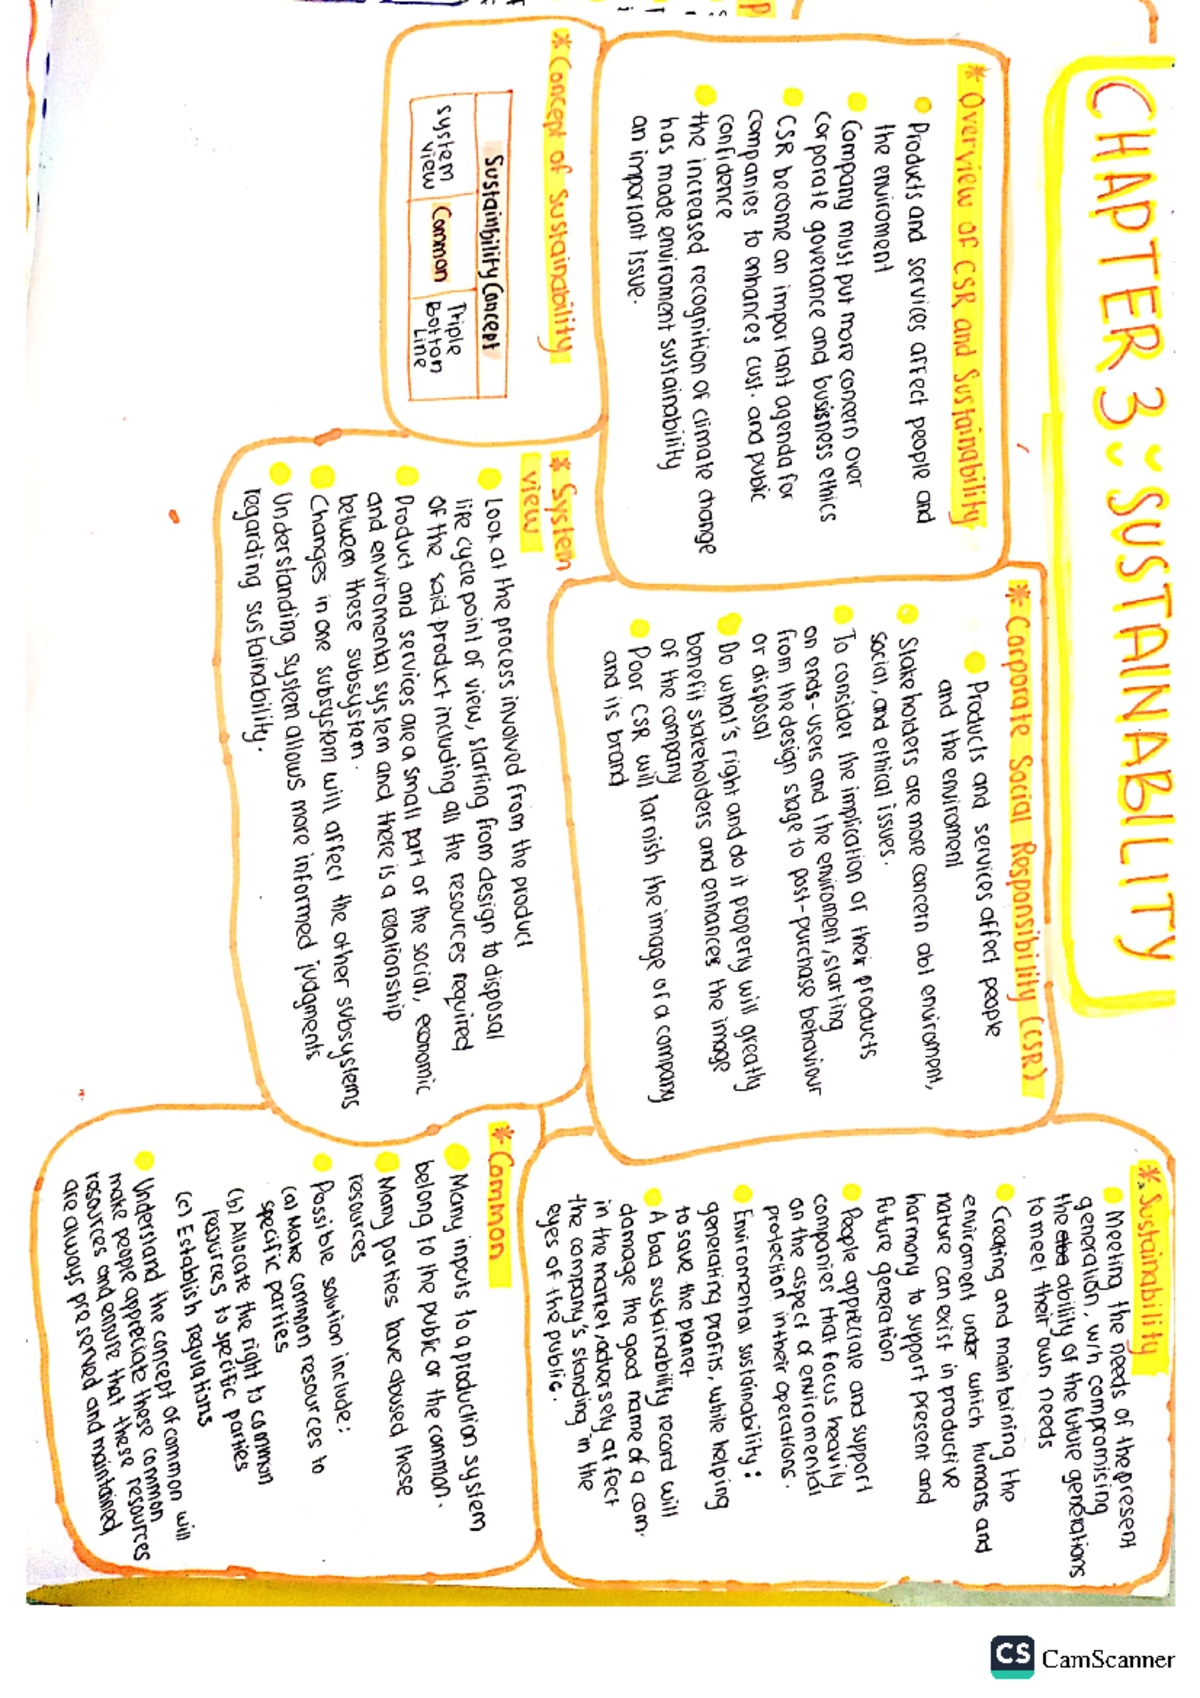 CHAPTER 3 : SUSTAINABILITY
* Overview of CSR and Sustainability
Products and services affect people and
the enviroment
Company must put more concern over
corporate goverance and busisness ethics
CSR become an important agenda for
companies to enhances cust. and pubic
confidence
the increased recognition of climate change
has made enviroment sustainability
an important issue.
* Corporate Social Responsibility (CSR)
Products and services affect people
and the enviroment
Stakeholders are more concern abt enviroment,
social, and ethical issues.
To consider the implication of their products
on ends-users and the enviroment, starting
from the design stage to post-purchase behaviour
or disposal
Do what's right and do it properly will greatly
benefit stakeholders and enhances the image
of the company
Poor CSR will tarnish the image of a company
and its brand
*. Sustainability
Meeting the needs of the present
generation, w/h compromising
the ability of the future generations
to meet their own needs
Creating and maintaining the
enviroment under which humans and
nature can exist in productive
harmony to support present and
future generation
People appreciate and support
companies that focus heavily
on the aspect of enviromental
protection in their operations.
Enviromental sustainability :
generating profits, while helping
to save the planet
A bad sustainability record will
damage the good name of a com.
in the market, adversely affect
the company's standing in the
eyes of the public.
* Concept of Sustainability
Sustainbility Concept
system view
Common
Triple Botton Line
* System
view
Look at the process involved from the product
life cycle point of view, starting from design to disposal
of the said product including all the resources required
Product and services are a small part of the social, economic
and enviromental system and there is a relationship
between these subsystem.
Changes in one subsystem will affect the other subsystems
Understanding system allows more informed judgments
regarding sustainability.
* Common
Many inputs to a production system
belong to the public or the common.
Many parties have abused these
resources
Possible solution include:
(a) Make common resources to
specific parties
(b) Allocate the right to common
resources to specific parties
(c) Establish regulations
Understand the concept of common will
make people appreciate these common
resources and ensure that these resources
are always preserved and maintained
CS CamScanner